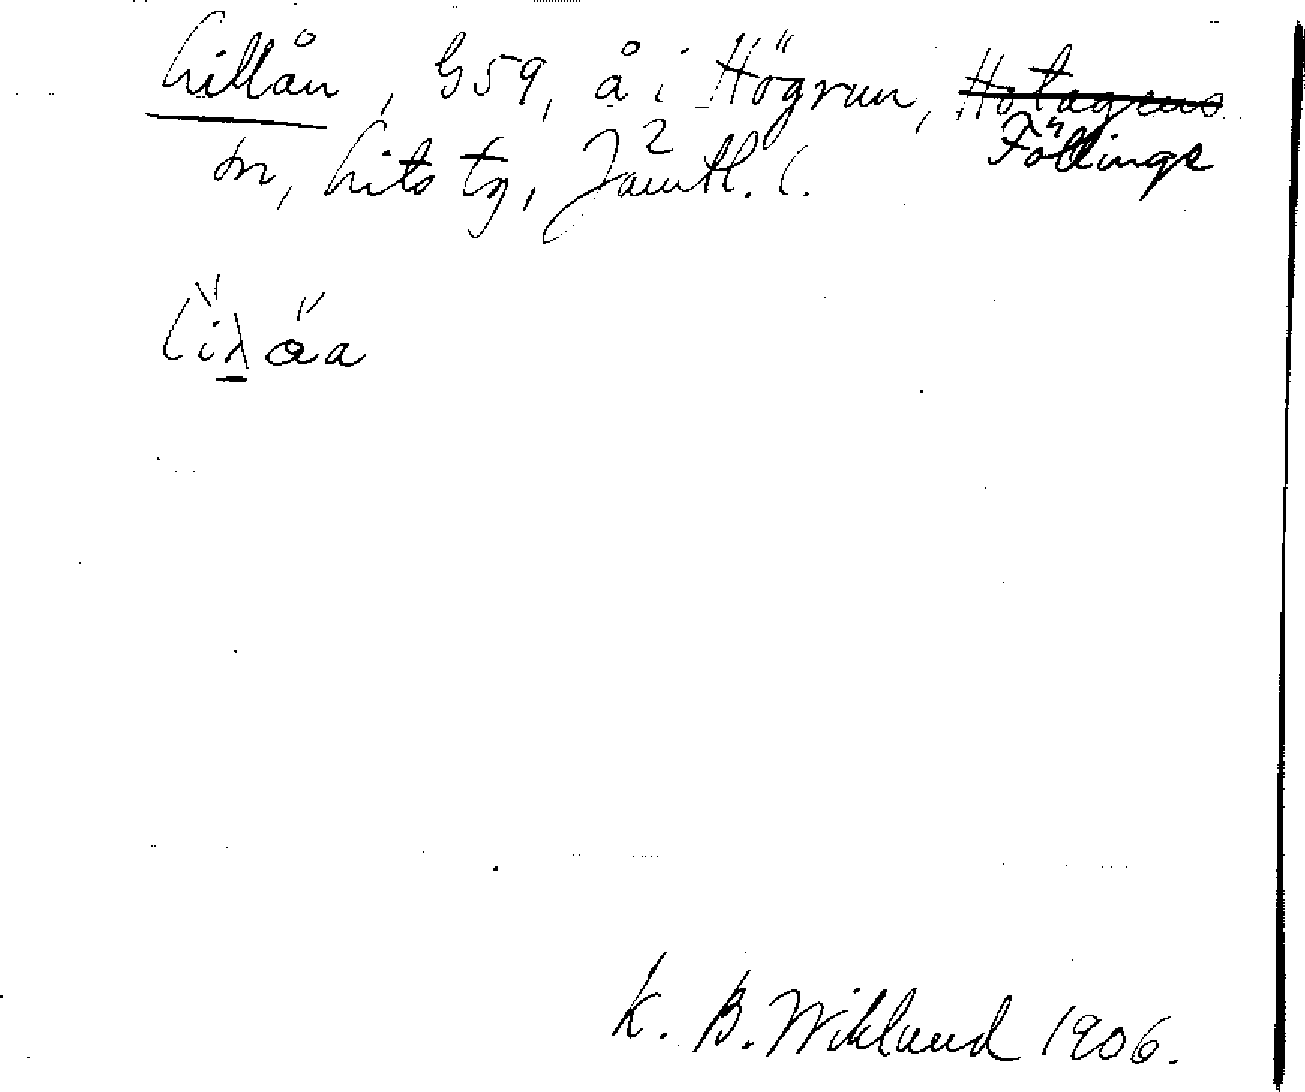 Lillån, G59, å i Högrun, Hotagens
Föllinge
sn, Lits tg, Jämtl. l.
K. B. Wiklund 1906.